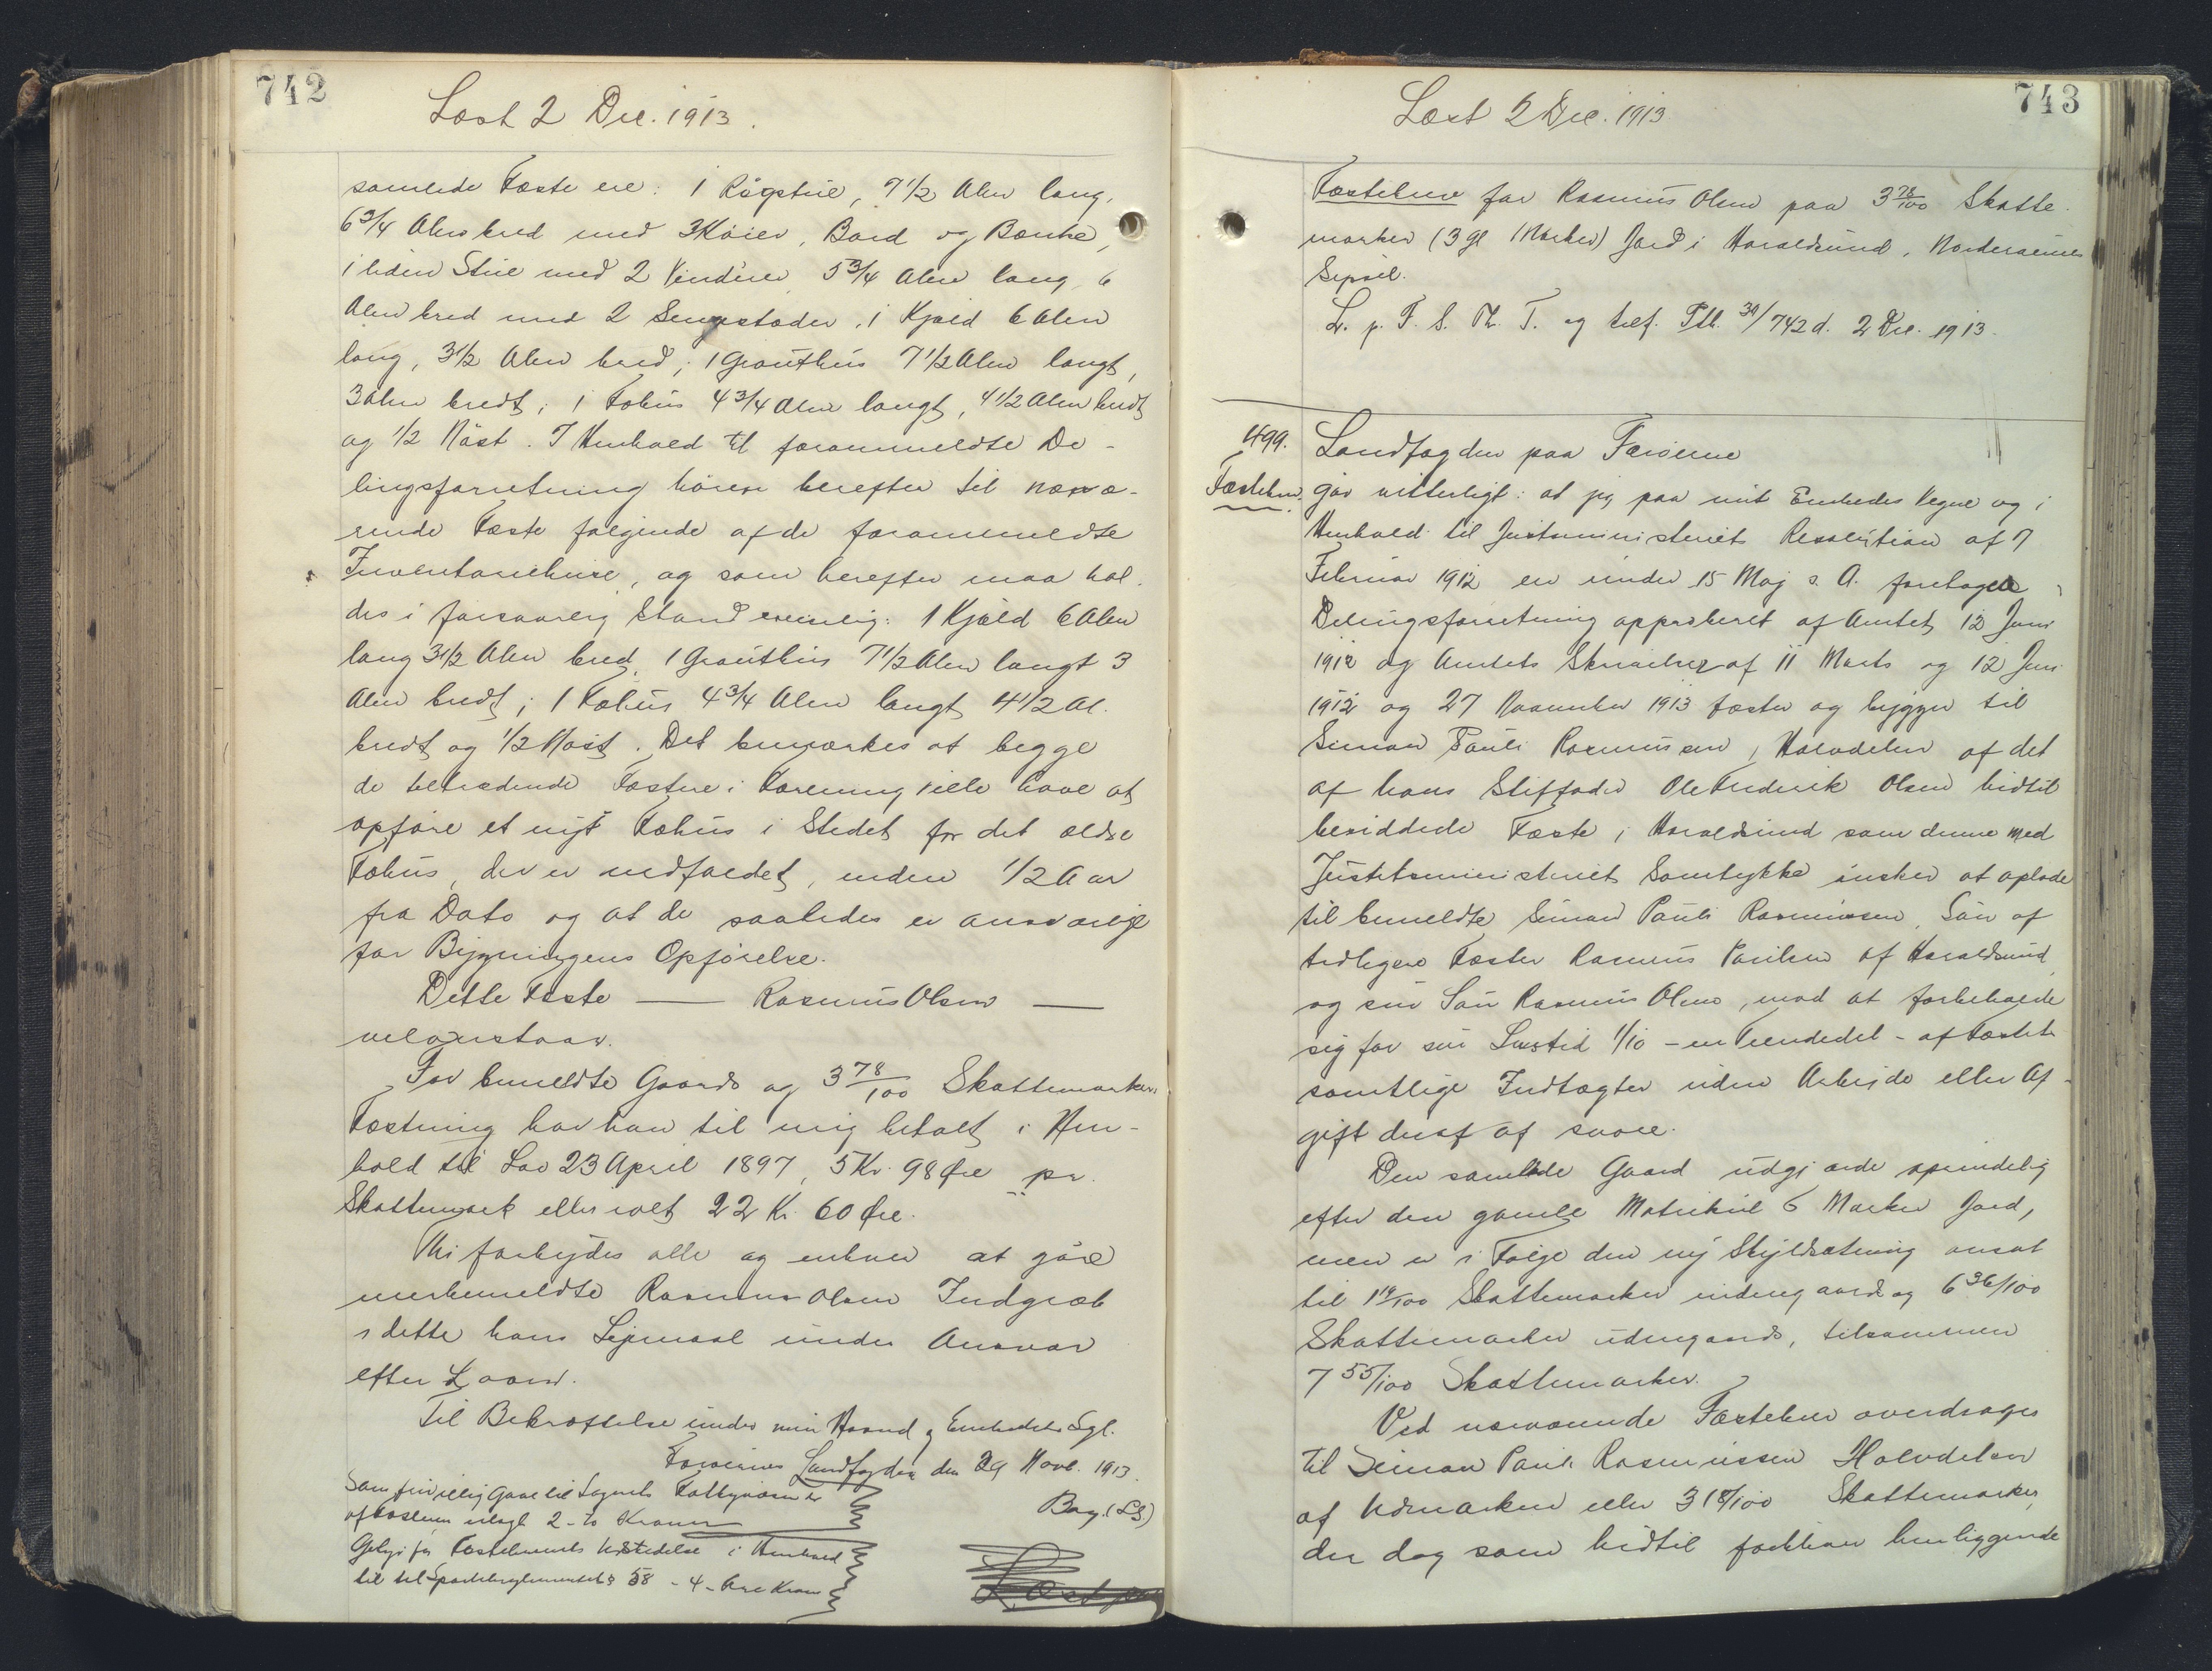 742
Læst 2 Dec. 1913.
samlede Fæste ere: 1 Røgstue, 7 1/2 Alen lang,
6 3/4 Alen bred med 3 Køier, Bord og Bænke,
1 liden Stue med 2 Vinduer, 5 3/4 Alen lang, 6
Alen bred med 2 Sengestæder, 1 Kjæld 6 Alen
lang, 3 1/2 Alen bred; 1 Grouthus 7 1/2 Alen langt,
3 Alen bredt; 1 Fæhus 4 3/4 Alen langt, 4 1/2 Alen bredt
og 1/2 Nøst. I Henhold til forommeldte De-
lingsforretning hører herefter til nærvæ-
rende Fæste følgende af de forommeldte
Inventariehuse, og som herefter maa hol-
des i forsvarlig Stand nemlig: 1 Kjæld 6 Alen
lang 3 1/2 Alen bred, 1 Grouthus 7 1/2 Alen langt 3
Alen bredt; 1 Fæhus 4 3/4 Alen langt 4 1/2 Al.
bredt og 1/2 Nøst. Det bemærkes at begge
de tiltrædende Fæstere i Forening ville have at
opføre et nyt Fæhus i Stedet for det ældre
Fæhus, der er nedfaldet, inden 1/2 Aar
fra Dato og at de saaledes er ansvarlige
for Bygningens Opførelse.
Dette Fæste — Rasmus Olsen —
velanstaar.
For bemeldte Gaards og 3 78/100 Skattemarkers
Fæstning har han til mig betalt i Hen-
hold til Lov 23 April 1897, 5 Kr. 98 Øre pr.
Skattemark eller ialt 22 Kr. 60 Øre.
Thi forbydes alle og enhver at gøre
merbemeldte Rasmus Olsen Indgreb
i dette hans Lejemaal under Ansvar
efter Loven.
Til Bekræftelse under min Haand og Embedets Segl.
Færøernes Landfogderi den 29 Novb. 1913.
Som frivillig Gave til Sognets Fattigvæsen er
af Fæsteren erlagt 2 - to Kroner
Bærg. (LS)
Gebyr for Fæstebrevets Udstedelse i Henhold
til Sportelreglementets § 58 - 4 - fire Kroner
743
Læst 2 Dec. 1913
Fæstebrev for Rasmus Olsen paa 3 78/100 Skatte-
marker (3 gl Marker) Jord i Haraldsund, Norderøernes
Syssel.
L. p. F. S. Th. T. og tilf. Ptb. 742 d. 2 Dec. 1913.
499.
Fæstebrev.
Landfogden paa Færøerne
gør vitterligt: at jeg paa mit Embedes Vegne og i
Henhold til Justsministeriets Resolution af 7
Februar 1912 en under 15 Maj s. A. foretagen
Delingsforretning approberet af Amtet 12 Juni
1912 og Amtets Skrivelser af 11 Marts og 12 Juni
1912 og 27 November 1913 fæster og bygger til
Simon Pauli Rasmussen, Halvdelen af det
af hans Stiffader Ole Frederik Olsen hidtil
besiddede Fæste i Haraldsund som denne med
Justitsministeriets Samtykke ønsker at oplade
til bemeldte Simon Pauli Rasmussen, Søn af
tidligere Fæster Rasmus Poulsen af Haraldsund
og sin Søn Rasmus Olsen, mod at forbeholde
sig for sin Livstid 1/10 - en Tiendedel - af Fæstets
samtlige Indtægter uden Arbejde eller Af-
gift deraf at svare.
Den samlede Gaard udgjorde oprindelig
efter den gamle Matrikul 6 Marker Jord,
men er i Følge den ny Skyldsætning ansat
til 1 19/100 Skattemarker indengaards og 6 36/100
Skattemarker udengaards, tilsammen
7 55/100 Skattemarker.
Ved nærværende Fæstebrev overdrages
til Simon Pauli Rasmussen Halvdelen
af Udmarken eller 3 18/100 Skattemarker,
der dog som hidtil forbliver henliggende